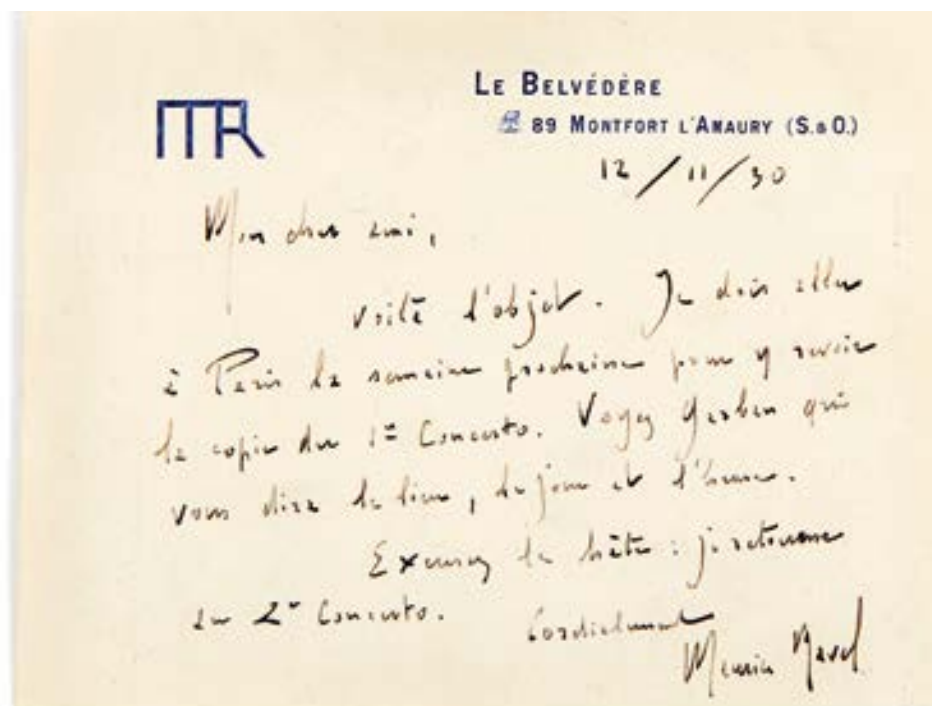 MR
LE BELVÉDÈRE
☎ 89 MONTFORT L'AMAURY (S.&O.)
12/11/30
Mon cher ami,
voilà l'objet. Je dois aller
à Paris la semaine prochaine pour y revoir
la copie du 1er Concerto. Voyez Gerben qui
vous dira le lieu, le jour et l'heure.
Excusez la hâte : je retourne
au 2e Concerto.
Cordialement
Maurice Ravel